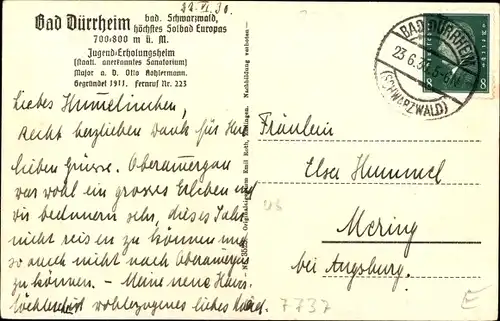 22.VI.30.
Bad Dürrheim bad. Schwarzwald,
höchstes Solbad Europas
700-800 m ü. M.
Jugend-Erholungsheim
(Staatl. anerkanntes Sanatorium)
Major a. D. Otto Kohlermann.
Gegründet 1911. Fernruf Nr. 223
Liebes Hummelinchen,
Recht herzlichen Dank für Ihre
lieben Grüsse. Oberammergau
war wohl ein grosses Erleben und
wir bedauern sehr, dieses Jahr
nicht reisen zu können und
so auch nicht nach Oberammergau
zu können. — Meine neue Haus-
ist wohlerzogenes liebes
Originalaufnahme Emil Roth, Nachbildung verboten
BAD DÜRRHEIM
23.6.30. 5-6
(SCHWARZWALD)
8 8
Fräulein
Elsa Hummel
Mering
bei Augsburg.
7737
E